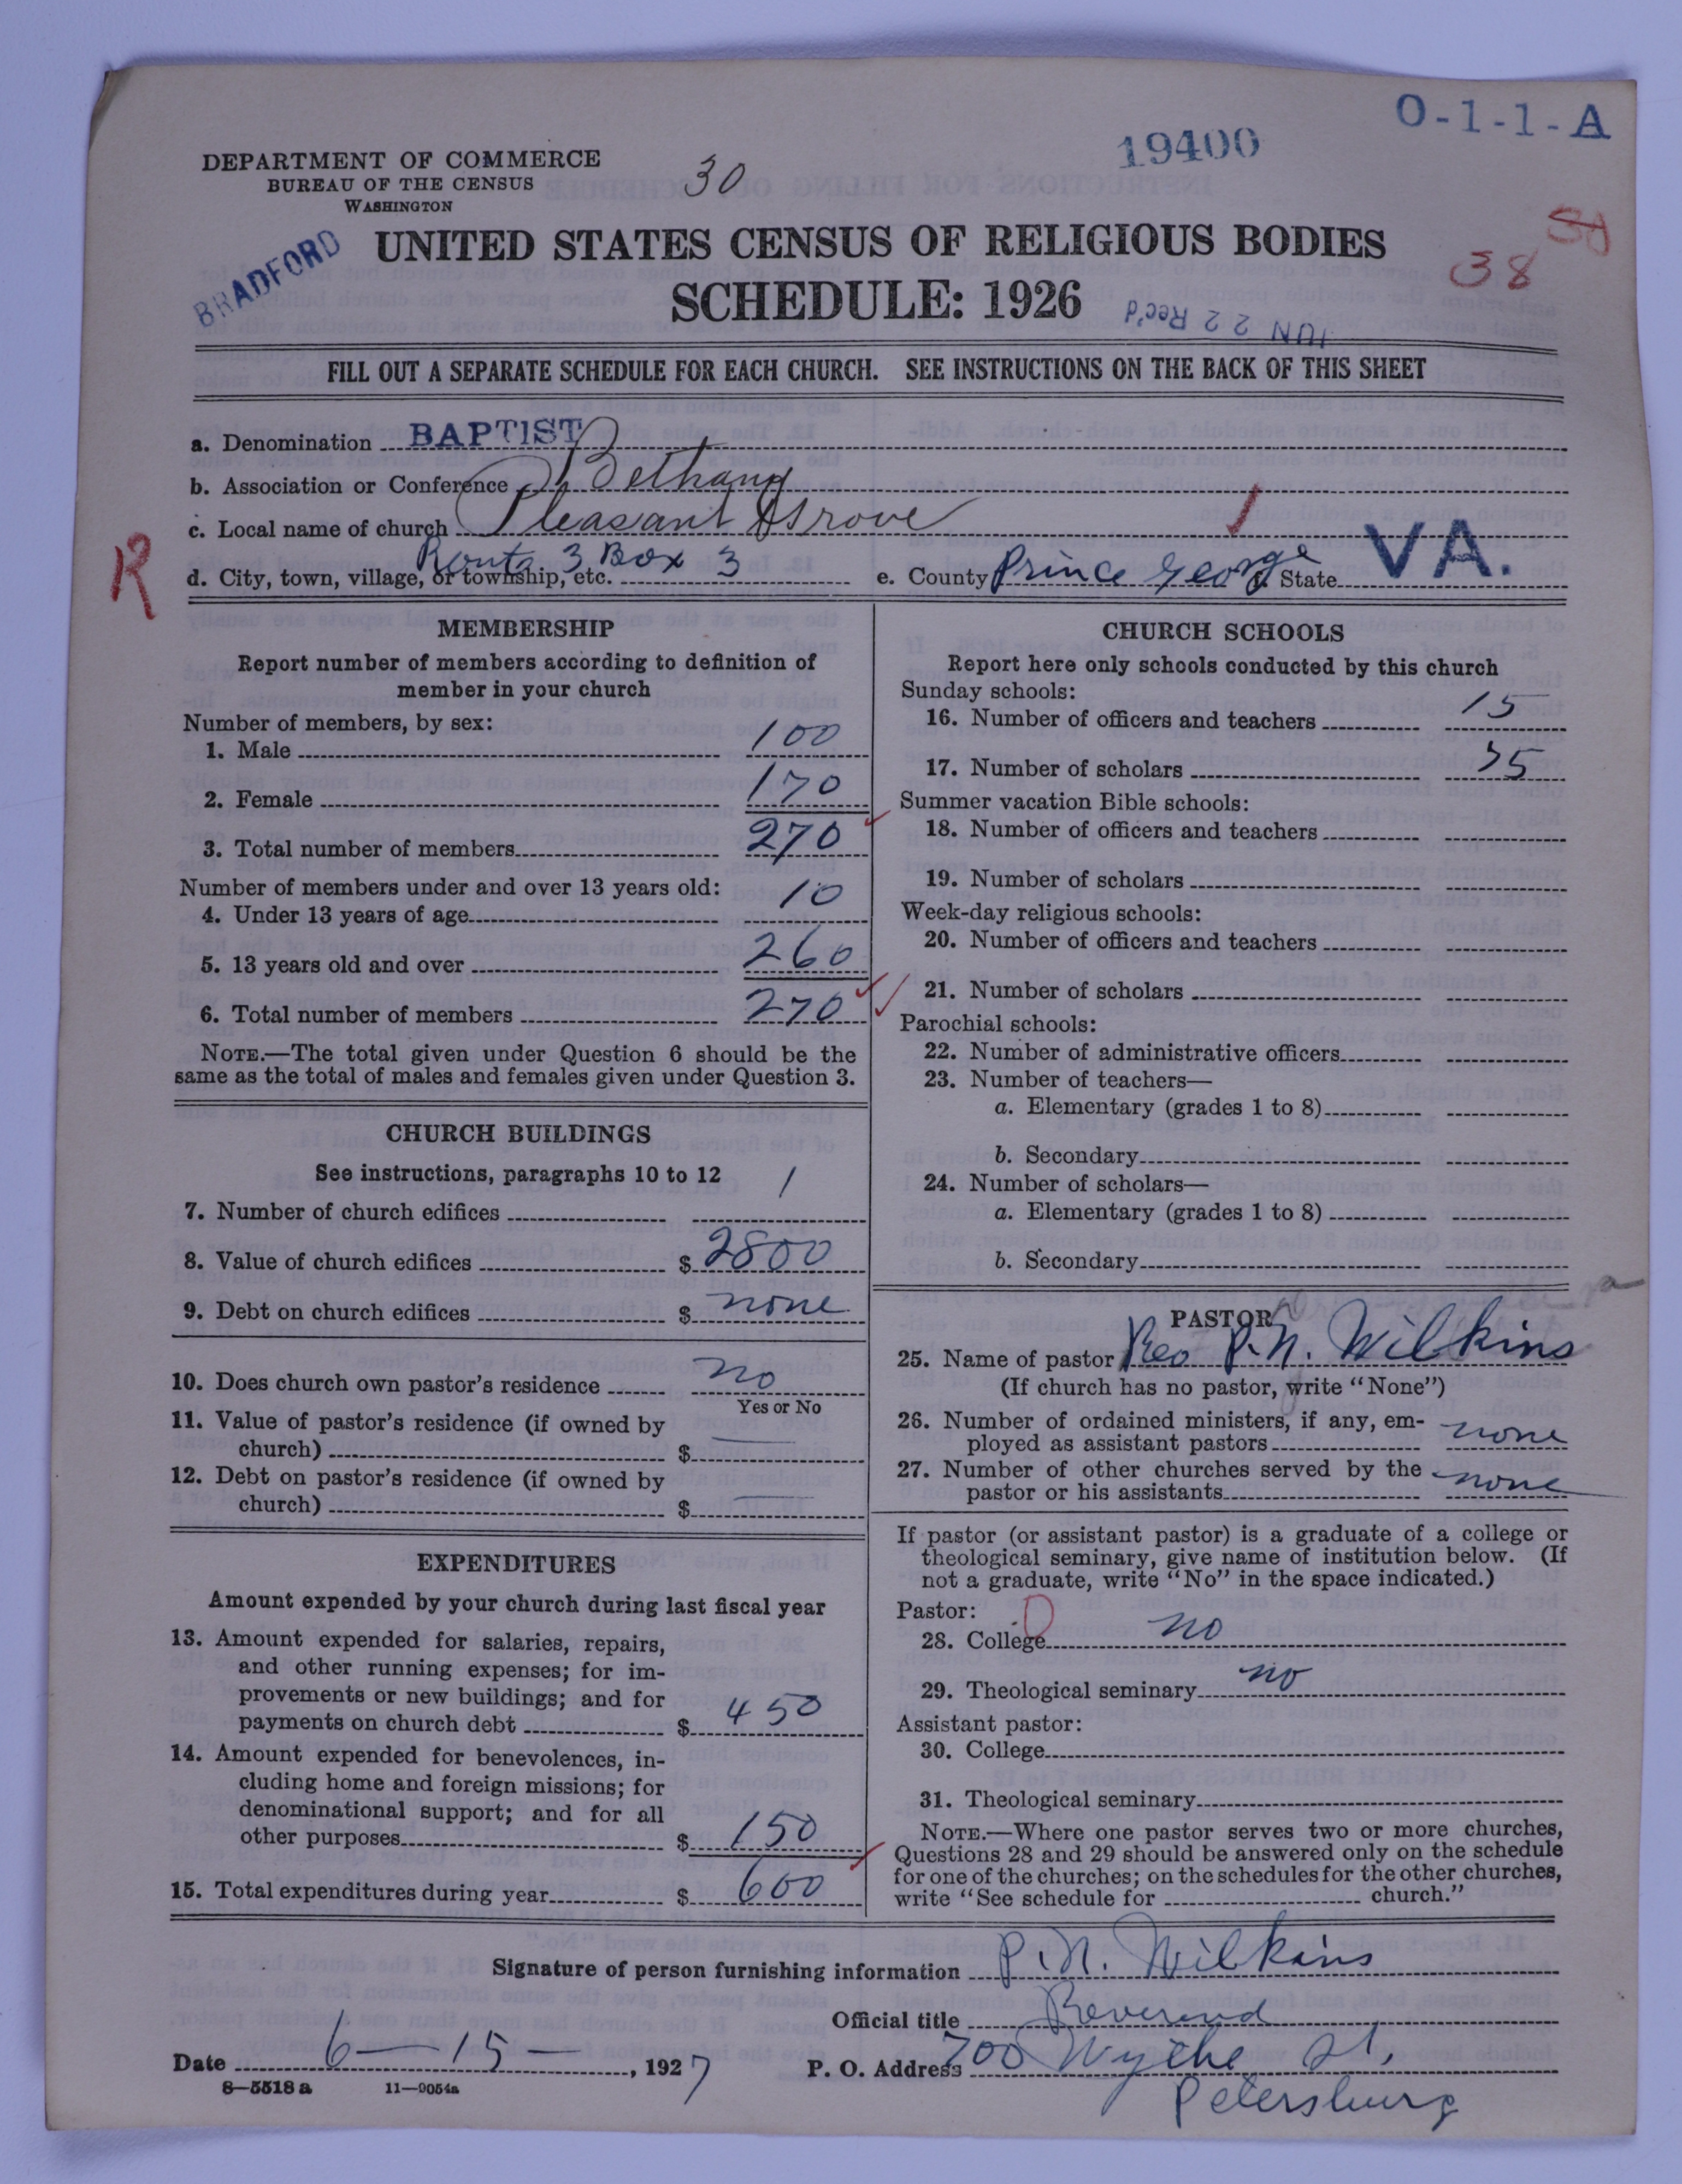 O-1-1-A
19400
DEPARTMENT OF COMMERCE
BUREAU OF THE CENSUS
WASHINGTON
30
BRADFORD
UNITED STATES CENSUS OF RELIGIOUS BODIES
SCHEDULE: 1926
38
JUN 22 Rec'd
FILL OUT A SEPARATE SCHEDULE FOR EACH CHURCH. SEE INSTRUCTIONS ON THE BACK OF THIS SHEET
a. Denomination BAPTIST
b. Association or Conference Bethany
c. Local name of church Pleasant Grove
R
d. City, town, village, or township, etc. Route 3 Box 3 e. County Prince George State VA.
MEMBERSHIP
Report number of members according to definition of
member in your church
Number of members, by sex:
1. Male 100
2. Female 170
3. Total number of members 270
Number of members under and over 13 years old:
4. Under 13 years of age 10
5. 13 years old and over 260
6. Total number of members 270
NOTE.—The total given under Question 6 should be the
same as the total of males and females given under Question 3.
CHURCH BUILDINGS
See instructions, paragraphs 10 to 12
7. Number of church edifices 1
8. Value of church edifices $ 2800
9. Debt on church edifices $ none
10. Does church own pastor's residence no
Yes or No
11. Value of pastor's residence (if owned by
church) $ —
12. Debt on pastor's residence (if owned by
church) $ —
EXPENDITURES
Amount expended by your church during last fiscal year
13. Amount expended for salaries, repairs,
and other running expenses; for im-
provements or new buildings; and for
payments on church debt $ 450
14. Amount expended for benevolences, in-
cluding home and foreign missions; for
denominational support; and for all
other purposes $ 150
15. Total expenditures during year $ 600
CHURCH SCHOOLS
Report here only schools conducted by this church
Sunday schools:
16. Number of officers and teachers 15
17. Number of scholars 75
Summer vacation Bible schools:
18. Number of officers and teachers
19. Number of scholars
Week-day religious schools:
20. Number of officers and teachers
21. Number of scholars
Parochial schools:
22. Number of administrative officers
23. Number of teachers—
a. Elementary (grades 1 to 8)
b. Secondary
24. Number of scholars—
a. Elementary (grades 1 to 8)
b. Secondary
PASTOR
25. Name of pastor Rev P. N. Wilkins
(If church has no pastor, write "None")
26. Number of ordained ministers, if any, em-
ployed as assistant pastors none
27. Number of other churches served by the
pastor or his assistants none
If pastor (or assistant pastor) is a graduate of a college or
theological seminary, give name of institution below. (If
not a graduate, write "No" in the space indicated.)
Pastor: 0
28. College no
29. Theological seminary no
Assistant pastor:
30. College
31. Theological seminary
NOTE.—Where one pastor serves two or more churches,
Questions 28 and 29 should be answered only on the schedule
for one of the churches; on the schedules for the other churches,
write "See schedule for church."
Signature of person furnishing information P. N. Wilkins
Official title Reverend
Date 6—15—, 1927 P. O. Address 700 Wythe St,
Petersburg
8—5518 a 11—9054a